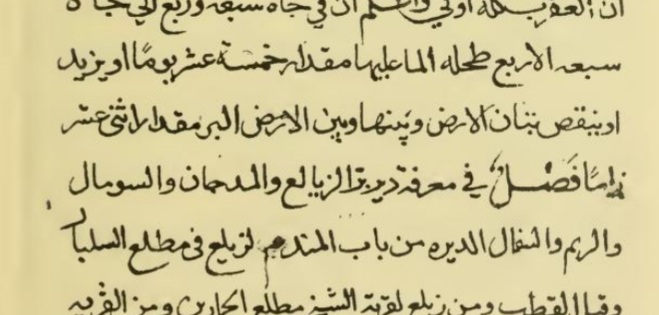 ان العقرب كله اولي واعلم ان في جاه سبعه وربع الي جاه
سبعه الاربع طحله الما عليها مقدار خمسة عشر يوما او يزيد
او ينقص تبنان الارض وبينها وبين الارض البر مقدار اثني عشر
زاما فصل في معرفة ديرة بر الزيالع والمدحمان والسومال
والريم والنفال الديره من باب المندم لزيلع في مطلع السلبار
وقبال القطب ومن زيلع لقرية الشيخ مطلع الحارين ومن القريه